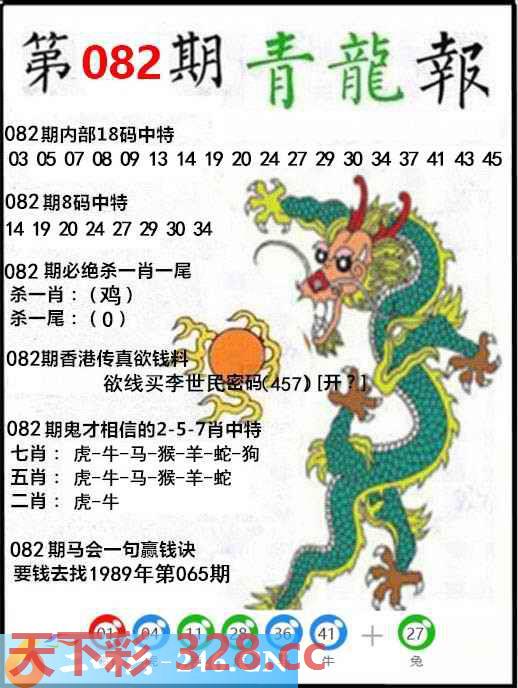 第082期青龍報
082期内部18码中特
03 05 07 08 09 13 14 19 20 24 27 29 30 34 37 41 43 45
082期8码中特
14 19 20 24 27 29 30 34
082期必绝杀一肖一尾
杀一肖：(鸡)
杀一尾：(0)
082期香港传真欲钱料
欲线买李世民密码(457)[开?]
082期鬼才相信的2-5-7肖中特
七肖：虎-牛-马-猴-羊-蛇-狗
五肖：虎-牛-马-猴-羊-蛇
二肖：虎-牛
082期马会一句赢钱诀
要钱去找1989年第065期
01 04 11 28 36 41 + 27
牛 兔
天下彩 328.cc